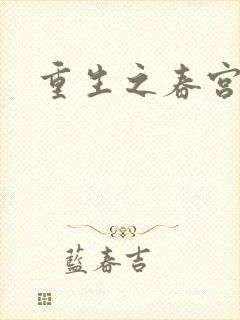 重生之春宫
藍春吉